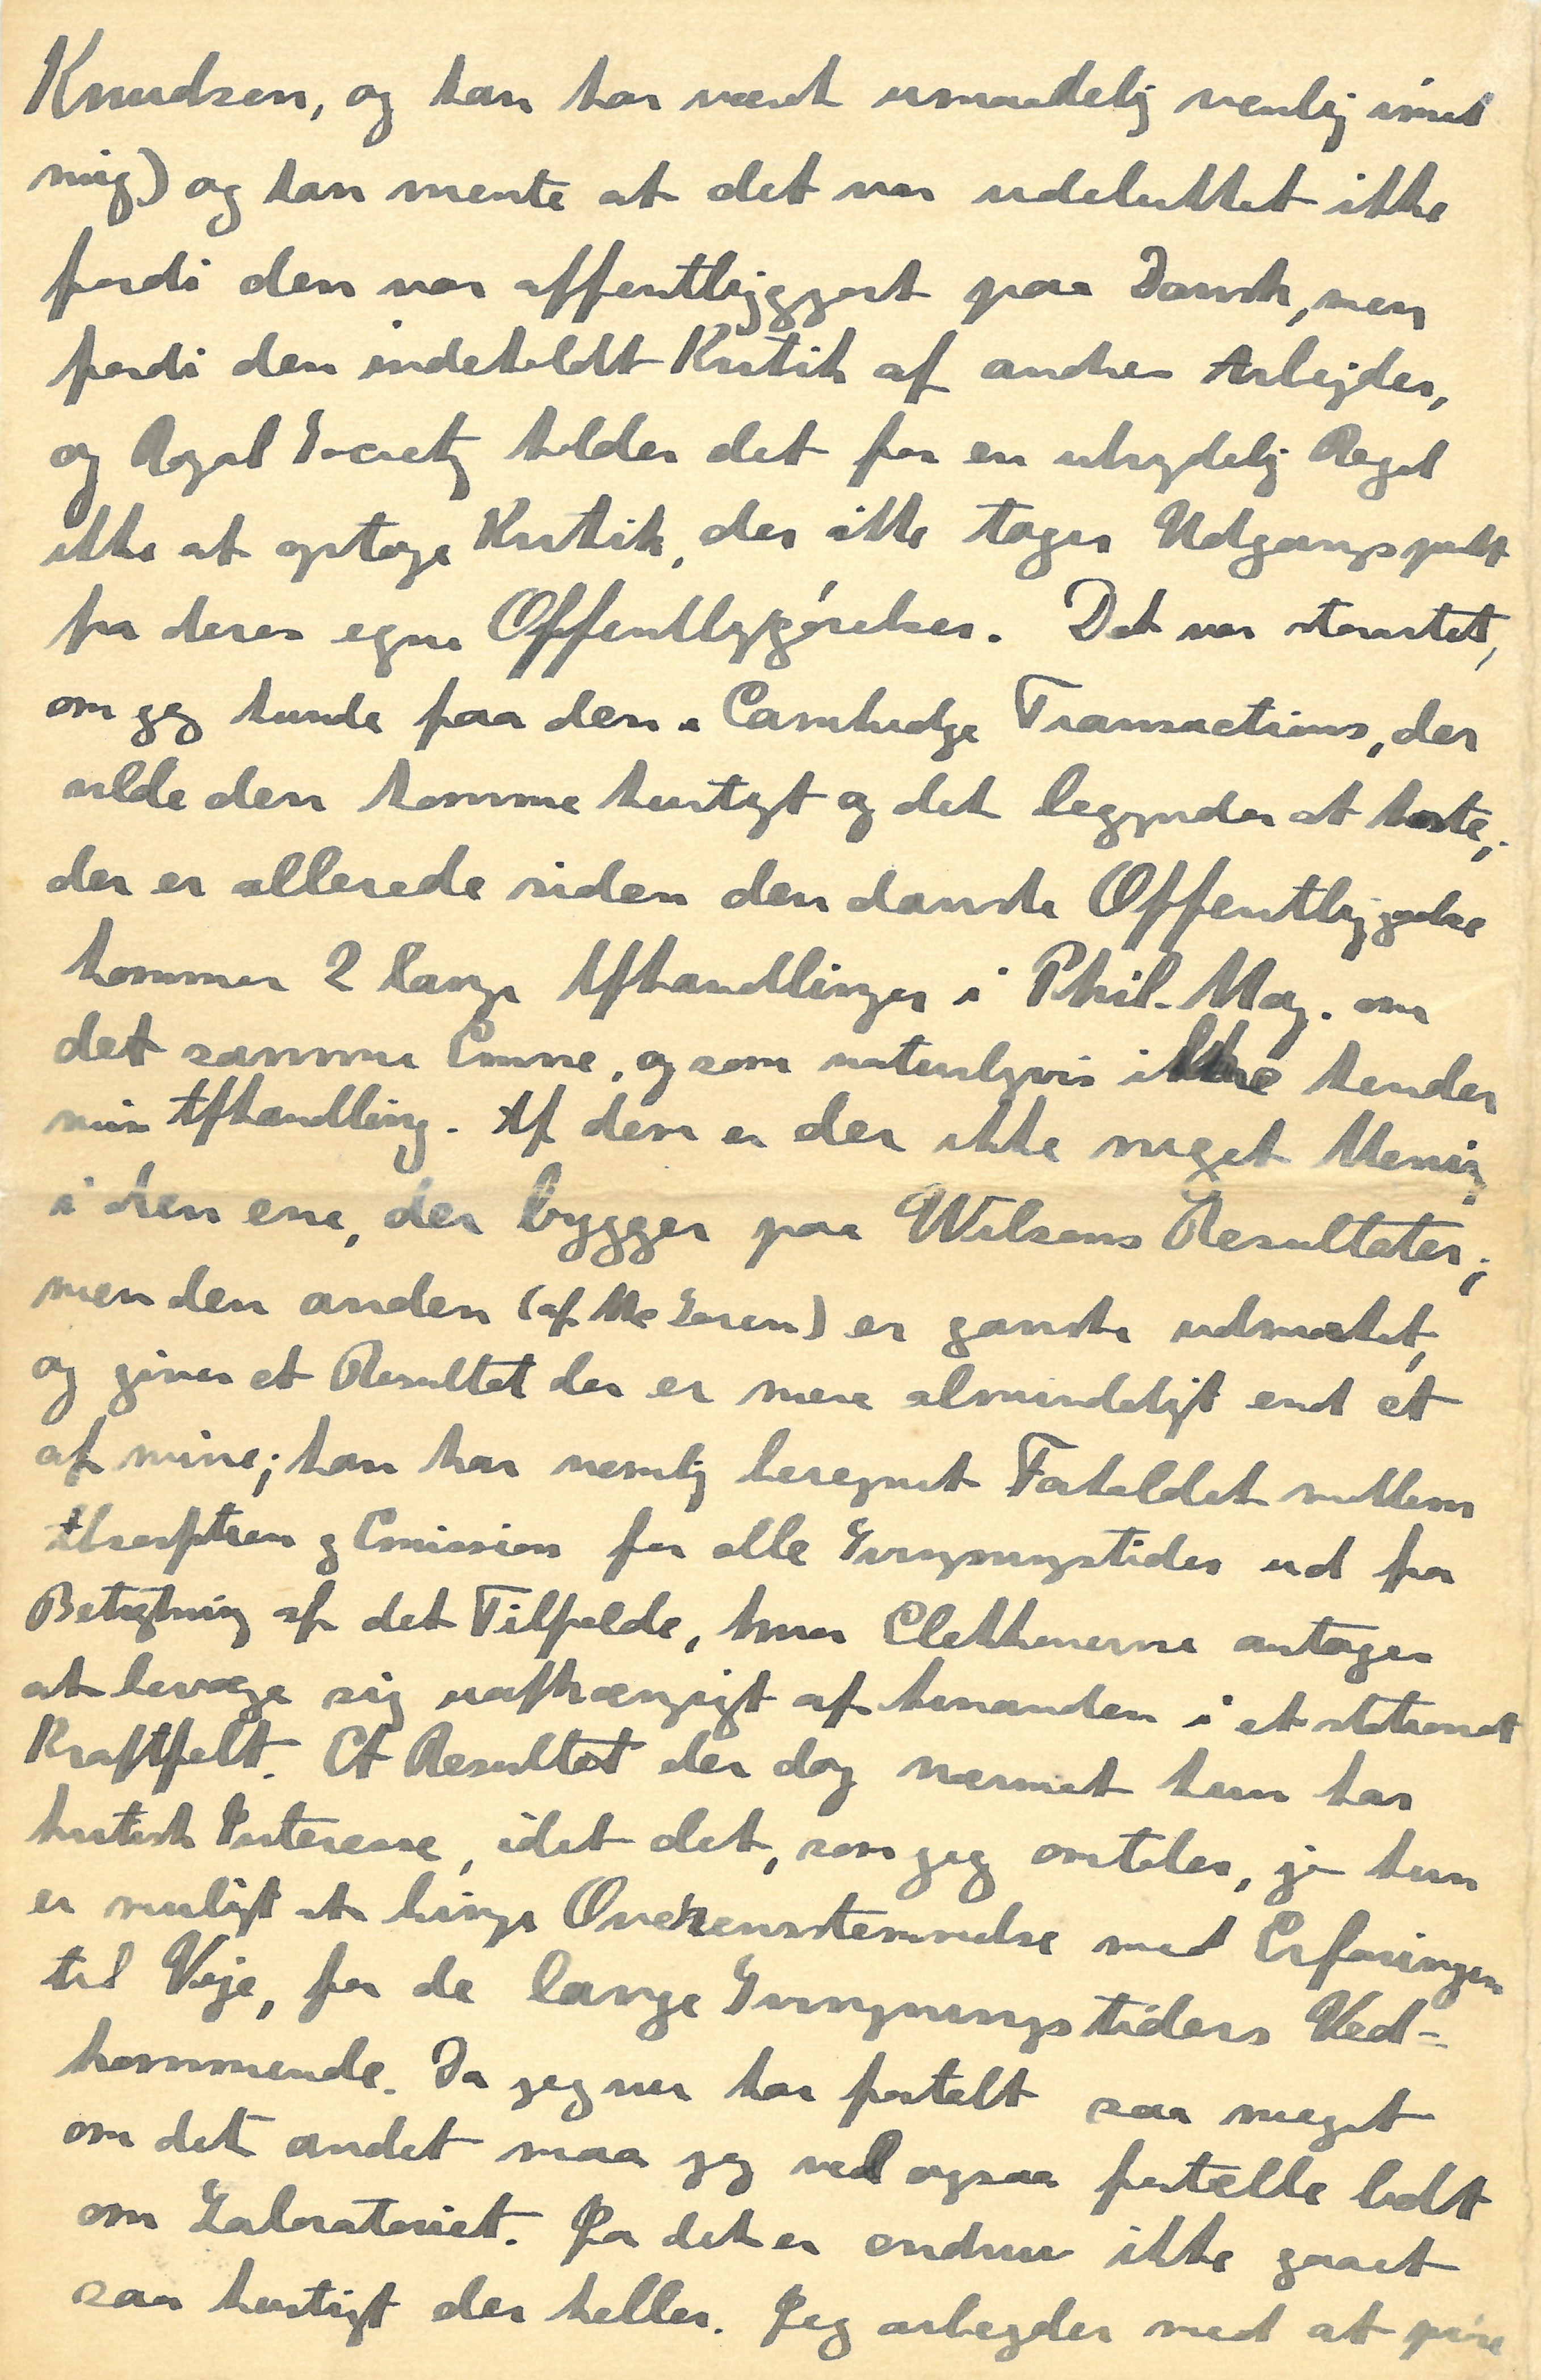 Knudsen, og han har været umaadelig venlig imod
mig) og han mente at det var udelukket ikke
fordi den var offentliggjort paa Dansk, men
fordi den indeholdt Kritik af andres Arbejder,
og Royal Society holder det for en ubrydelig Regel
ikke at optage Kritik, der ikke tager Udgangspunkt
fra deres egne Offentliggørelser. Det var storartet,
om jeg kunde faa den i Cambridge Transactions, der
vilde den komme hurtigt og det begynder at haste;
der er allerede siden den danske Offentliggørelse
kommen 2 lange Afhandlinger i Phil. Mag. om
det samme Emne, og som naturligvis ikke kender
min Afhandling. Af dem er der ikke meget Mening
i den ene, der bygger paa Wilsons Resultater;
men den anden (af Mc Laren) er ganske udmærket,
og giver et Resultat der er mere almindeligt end et
af mine; han har nemlig beregnet Forholdet mellem
Absorption og Emission for alle Svingningstider ud fra
Betragtning af det Tilfælde, hvor Elektronerne antages
at bevæge sig uafhængigt af hinanden i et stationært
Kraftfelt. Et Resultat der dog nærmest kun har
kritisk Interesse, idet det, som jeg omtaler, jo kun
er muligt at bringe Overensstemmelse med Erfaringen
til Veje, for de lange Svingningstiders Ved=
kommende. Da jeg nu har fortalt saa meget
om det andet maa jeg vel ogsaa fortælle lidt
om Laboratoriet. Ja det er endnu ikke gaaet
saa hurtigt der heller. Jeg arbejder med at prøve